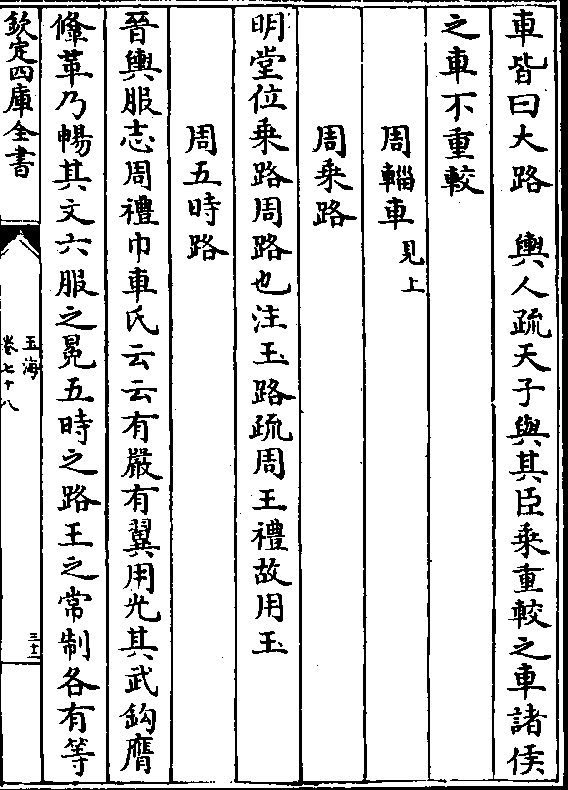 車皆曰大路　輿人疏天子與其臣乗重較之車諸侯
之車不重較
周輜車見上
周乗路
明堂位乗路周路也注玉路疏周王禮故用玉
周五時路
晉輿服志周禮巾車氏云云有嚴有翼用光其武鈎膺
鞗革乃暢其文六服之冕五時之路王之常制各有等
欽定四庫全書
玉海
卷七十八
三十二